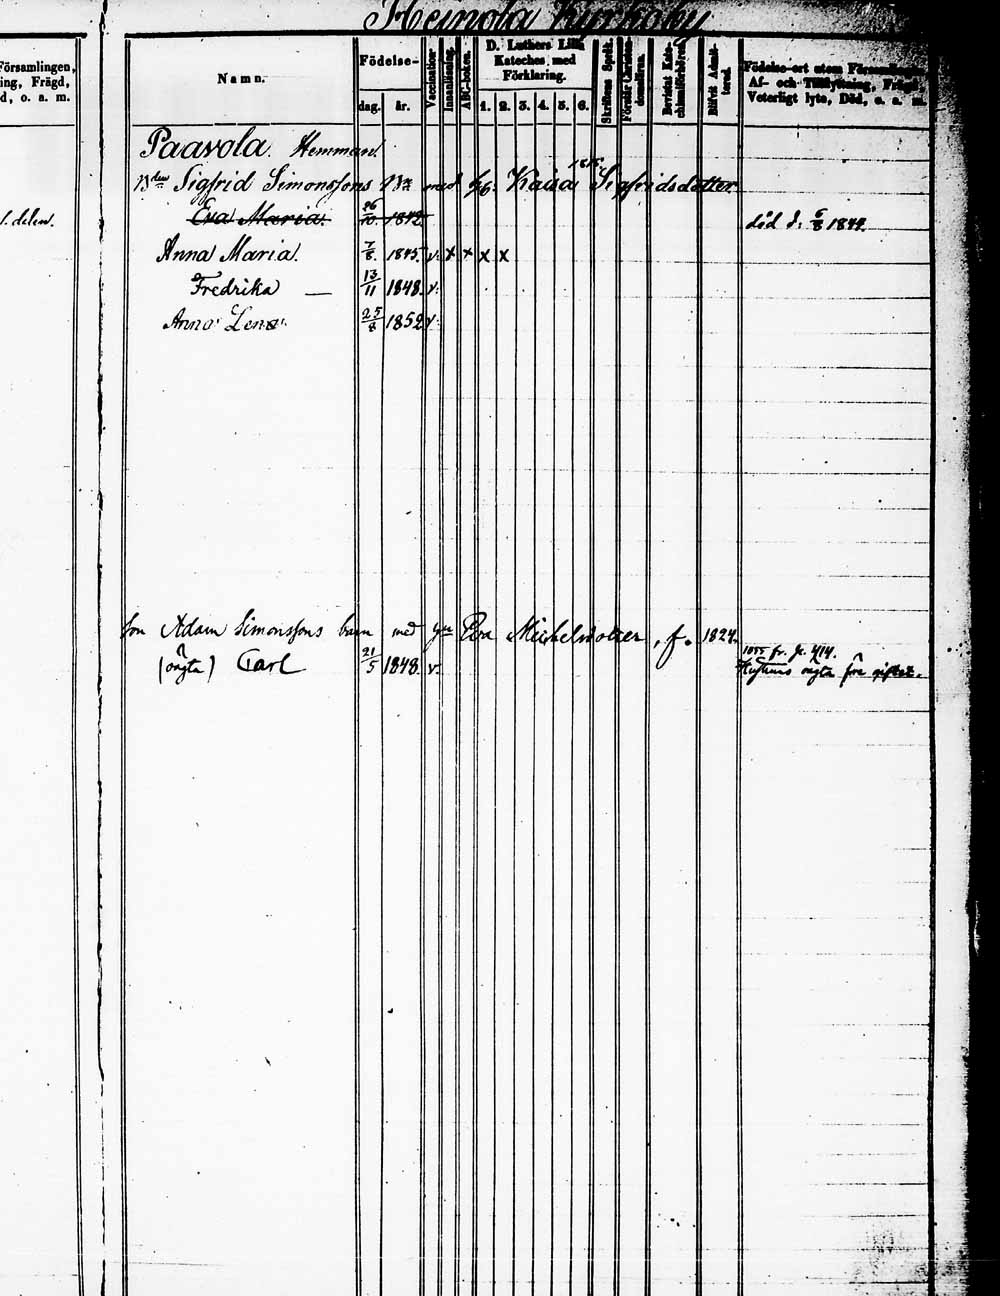 Heinola Kyrkoby
Församlingen,
ing, Frägd,
d, o. a. m.
Namn.
Födelse-
dag. år.
Vaccination
Innanläsning.
ABC-boken.
D. Luthers Lilla
Kateches med
Förklaring.
1. 2. 3. 4. 5. 6.
Skriftens Språk.
Födelse-ort utom Församlingen,
Af- och Tillflyttning, Frägd,
Veterligt lyte, Död, o. a. m.
Paavola Hemman.
1815.
Bden Sigfrid Simonssons Bn med h6: Kaisa Sigfridsdotter
l. delen.
Eva Maria. 26/10. 1842. död d: 6/8 1844
Anna Maria. 7/8 1845. v. x x x x
Fredrika — 13/11 1848. v.
Anna Lena 25/8 1852 v.
son Adam Simonssons barn med Eva Michelsdotter, f. 1824.
(oägta) Carl 21/5 1848. v. 1855 fr. p. 414.
Hustruns oägta före